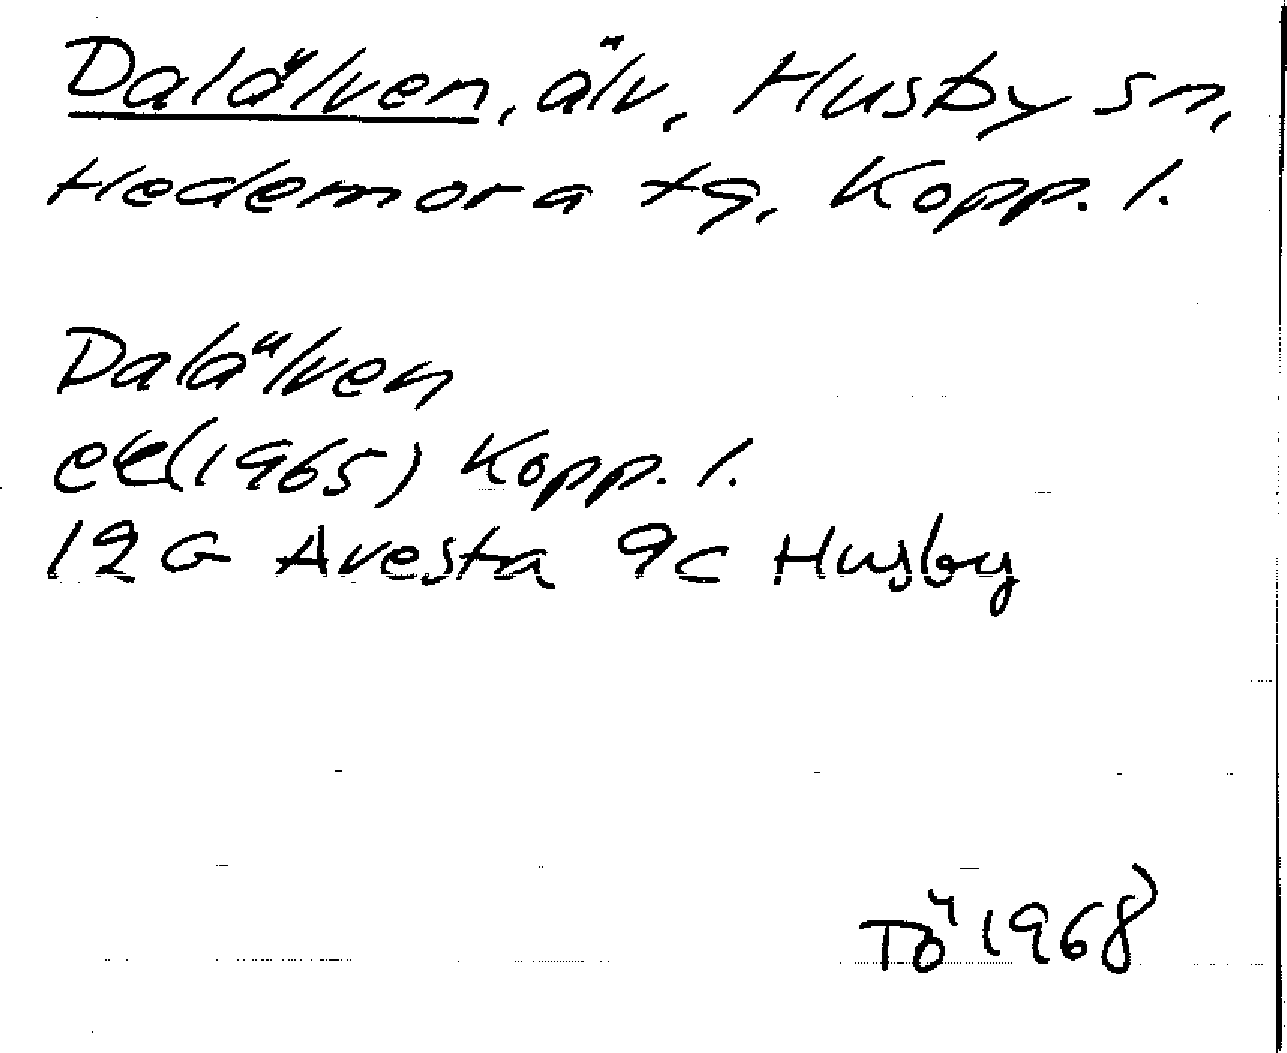 Dalälven, älv, Husby sn,
Hedemora tg, Kopp. l.
Dalälven
ek(1965) Kopp. l.
12 G Avesta 9c Husby
TÖ 1968